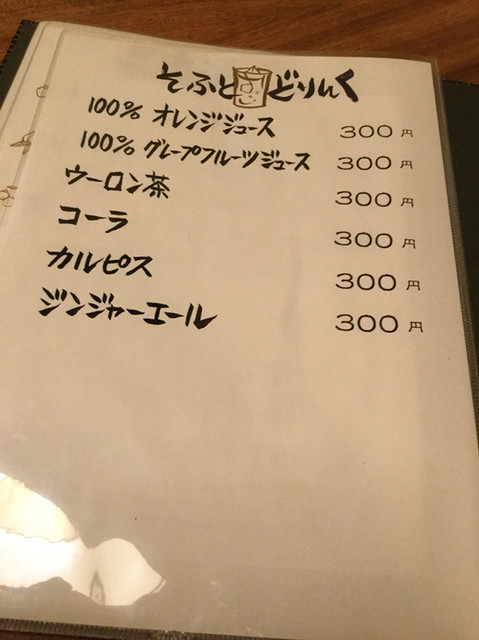 そふとどりんく
100% オレンジジュース 300円
100% グレープフルーツジュース 300円
ウーロン茶 300円
コーラ 300円
カルピス 300円
ジンジャーエール 300円